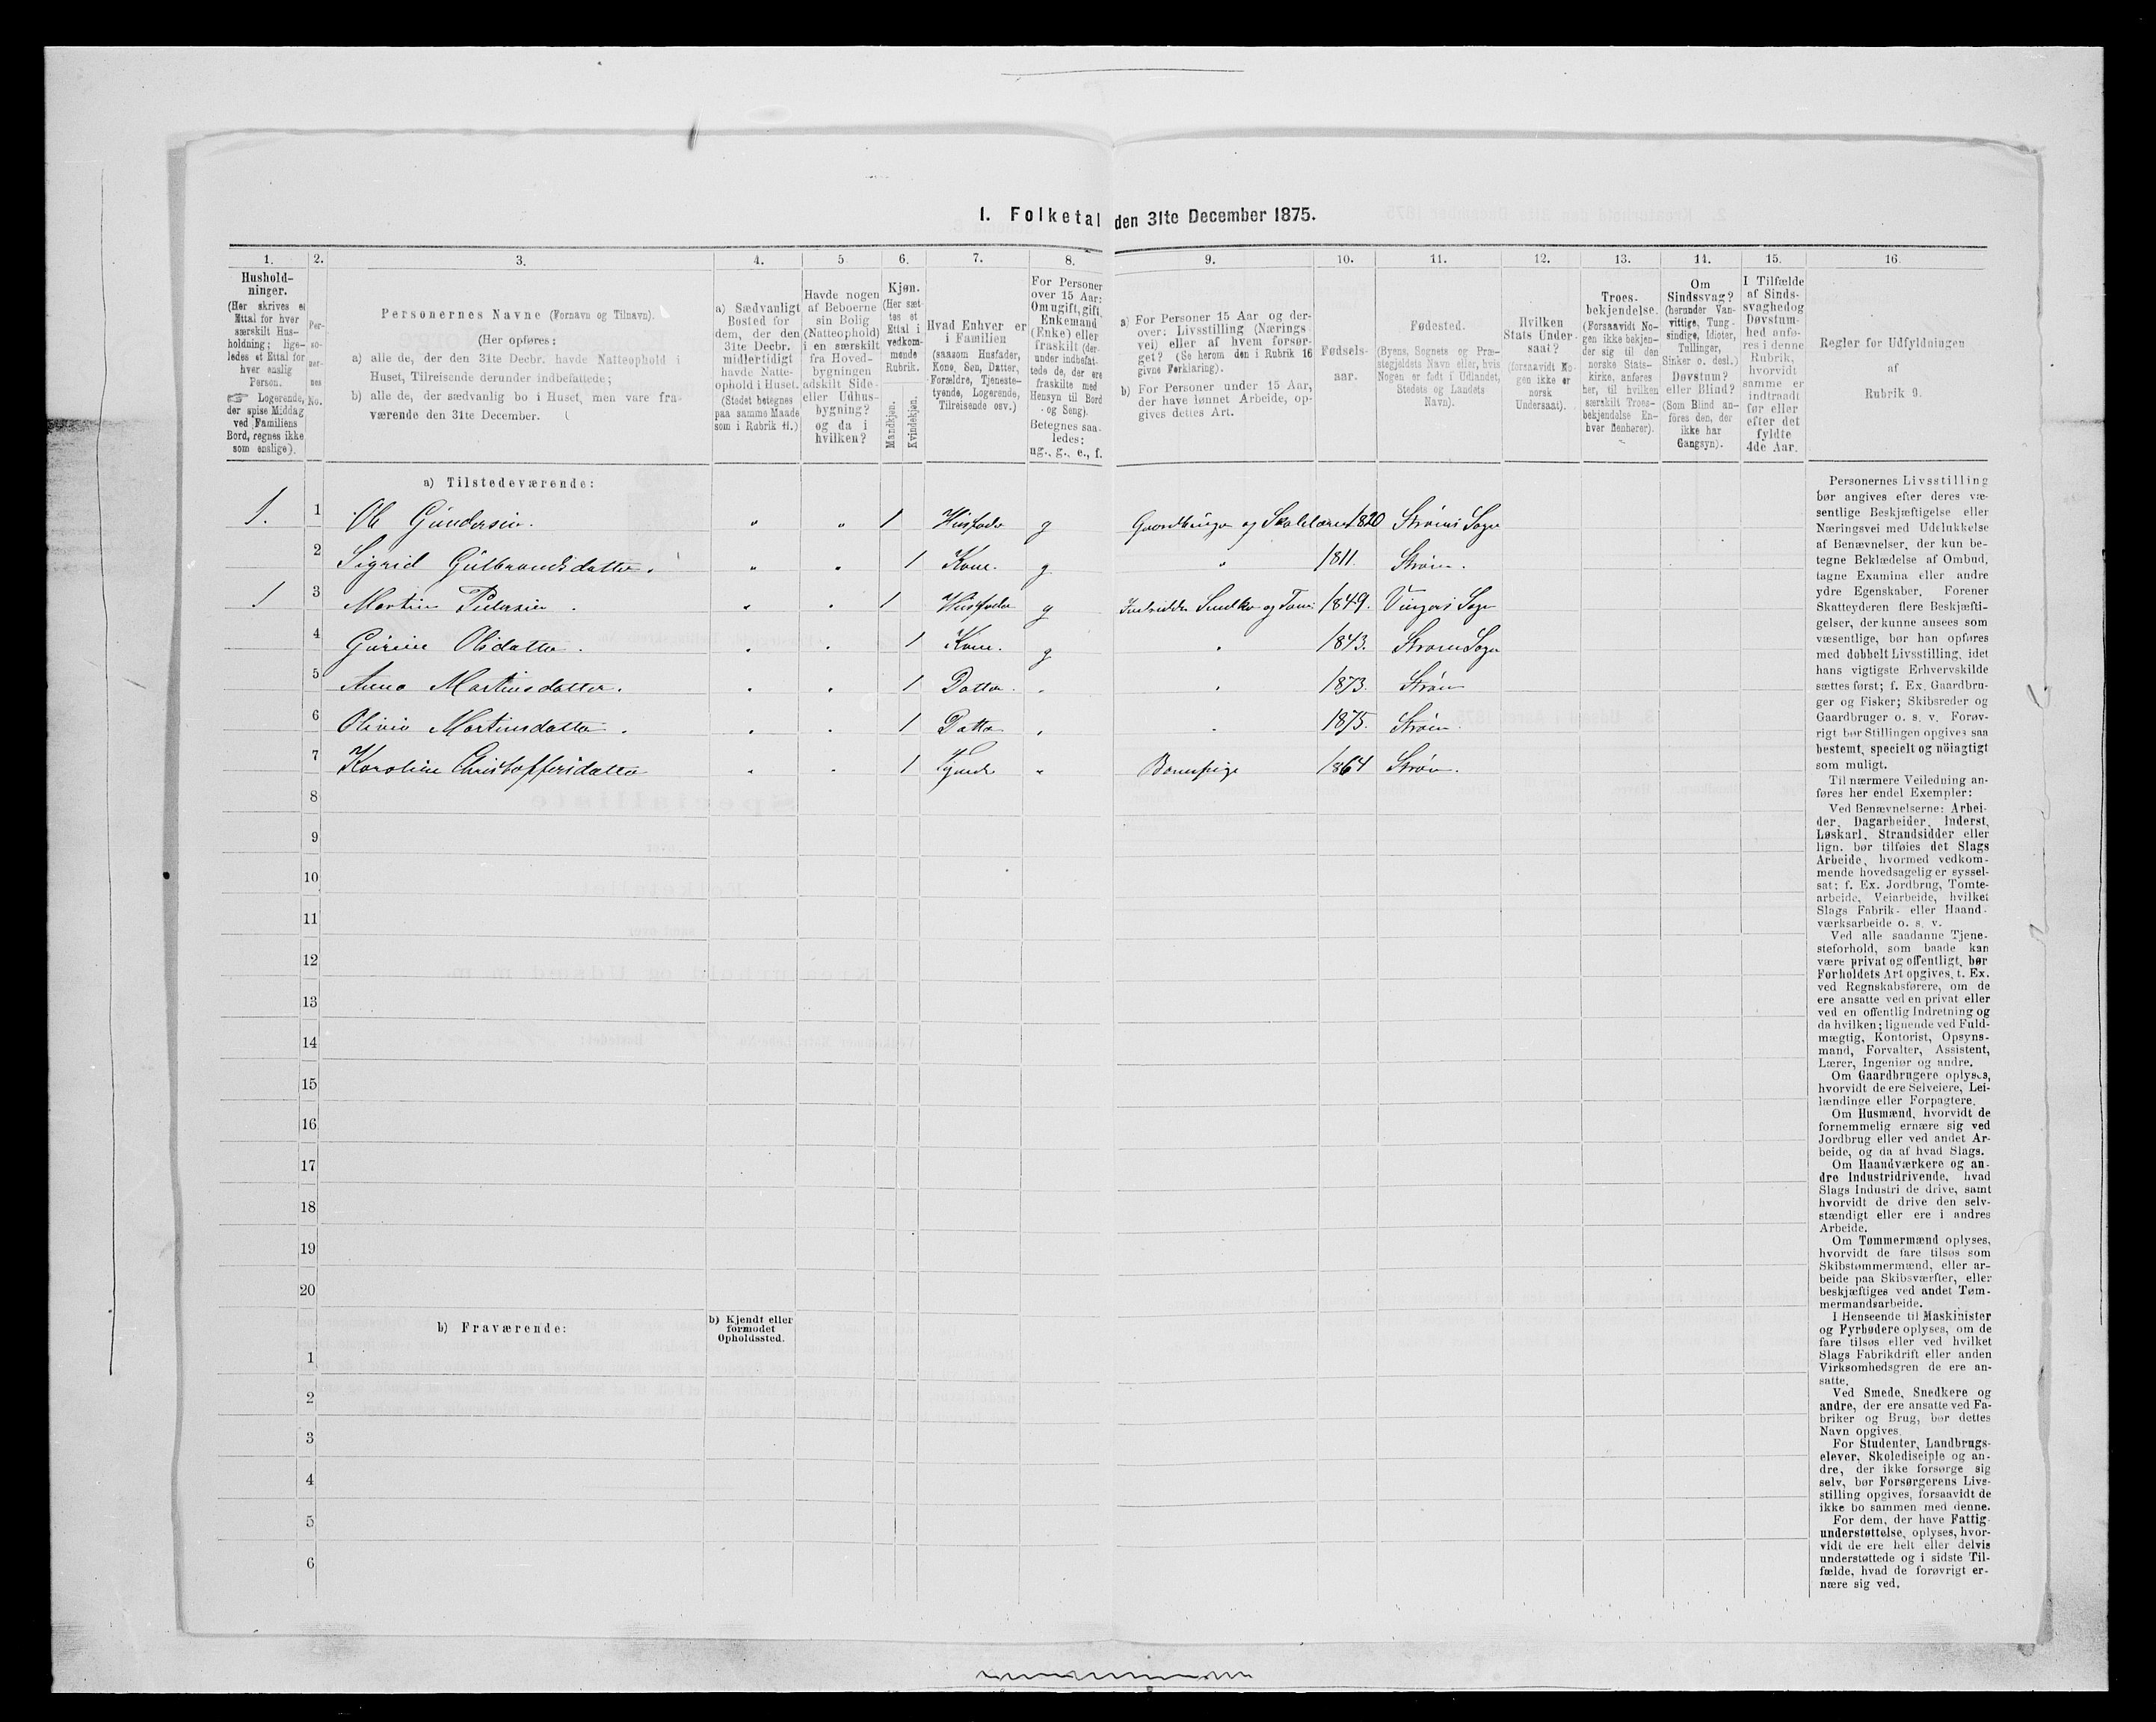 1. Folketal den 31te December 1875.
1. 2. 3. 4. 5 6. 7. 8. 9. 10. 11. 12. 13. 14. 15. 16
Hushold-
ninger.
(Her skrives et
Ettal for hver
særskilt Hus-
holdning; lige-
ledes et Ettal for
hver enslig
Person.
☞ Logerende,
der spise Middag
ved Familiens
Bord, regnes ikke
som enslige).
Per-
so-
ner-
nes
No.
Personernes Navne (Fornavn og Tilnavn).
(Her opføres:
a) alle de, der den 31te Decbr. havde Natteophold i
Huset, Tilreisende derunder indbefattede;
b) alle de, der sædvanlig bo i Huset, men vare fra-
værende den 31te December.
a) Sædvanligt
Bosted for
dem, der den
31te Decbr.
midlertidigt
havde Natte-
ophold i Huset.
(Stedet betegnes
paa samme Maade
som i Rubrik 11.)
Havde nogen
af Beboerne
sin Bolig
(Natteophold)
i en særskilt
fra Hoved-
bygningen
adskilt Side-
eller Udhus-
bygning?
og da i
hvilken?
Kjøn.
(Her sæt-
tes et
Ettal i
vedkom-
mende
Rubrik.
Mandkjøn.
Kvindekjøn.
Hvad Enhver er
i Familien
(saasom Husfader,
Kone, Søn, Datter,
Forældre, Tjeneste-
tyende, Logerende,
Tilreisende osv.)
For Personer
over 15 Aar:
Om ugift, gift,
Enkemand
(Enke) eller
fraskilt (der-
under indbefat-
tede de, der ere
fraskilte med
Hensyn til Bord
og Seng).
Betegnes saa-
ledes:
ug., g., e., f.
a) For Personer 15 Aar og der-
over: Livsstilling (Nærings-
vei) eller af hvem forsør-
get? (Se herom den i Rubrik 16
givne Forklaring).
b) For Personer under 15 Aar,
der have lønnet Arbeide, op-
gives dettes Art.
Fødsels-
aar.
Fødested.
(Byens, Sognets og Præ-
stegjeldets Navn eller, hvis
Nogen er født i Udlandet,
Stedets og Landets
Navn).
Hvilken
Stats Under-
saat?
(forsaavidt No-
gen ikke er
norsk
Undersaat).
Troes-
bekjendelse.
(Forsaavidt No-
gen ikke bekjen-
der sig til den
norske Stats-
kirke, anføres
her, til hvilken
særskilt Troes-
bekjendelse En-
hver henhører).
Om
Sindssvag?
(herunder Van-
vittige, Tung-
sindige, Idioter,
Tullinger,
Sinker o. desl.)
Døvstum?
eller Blind?
(Som Blind an-
føres den, der
ikke har
Gangsyn).
I Tilfælde
af Sinds-
svaghed og
Døvstum-
hed anfø-
res i denne
Rubrik,
hvorvidt
samme er
indtraadt
før eller
efter det
fyldte
4de Aar.
Regler for Udfyldningen
af
Rubrik 9.
a) Tilstedeværende:
1. 1 Ole Gundersen. " " 1 Husfader g Gaardbruger og Skolelærer 1820 Strøms Sogn
2 Sigrid Gulbrandsdatter. " " 1 Kone. g " 1811. Strøm.
1 3 Martin Pedersen. " " 1 Husfader g Inderst Snedker og 1849. Vingers Sogn
4 Gurine Olsdatter. " " 1 Kone. g " 1843. Strøm Sogn
5 Anna Martinsdatter. " " 1 Datter. " " 1873. Strøm
6 Olivia Martinsdatter. " " 1 Datter " " 1875. Strøm.
7 Karoline Christoffersdatter " " 1 " Barnepige 1864 Strøm.
8
9
10
11
12
13
14
15
16
17
18
19
20
b) Fraværende:
b) Kjendt eller
formodet
Opholdssted.
1
2
3
4
5
6
Personernes Livsstilling
bør angives efter deres væ-
sentlige Beskjæftigelse eller
Næringsvei med Udelukkelse
af Benævnelser, der kun be-
tegne Beklædelse af Ombud,
tagne Examina eller andre
ydre Egenskaber. Forener
Skatteyderen flere Beskjæfti-
gelser, der kunne ansees som
væsentlige, bør han opføres
med dobbelt Livsstilling, idet
hans vigtigste Erhvervskilde
sættes først; f. Ex. Gaardbru-
ger og Fisker; Skibsreder og
Gaardbruger o. s. v. Forøv-
rigt bør Stillingen opgives saa
bestemt, specielt og nøiagtigt
som muligt.
Til nærmere Veiledning an-
føres her endel Exempler:
Ved Benævnelserne: Arbei-
der, Dagarbeider, Inderst,
Løskarl, Strandsidder eller
lign. bør tilføies det Slags
Arbeide, hvormed vedkom-
mende hovedsagelig er syssel-
sat; f. Ex. Jordbrug, Tomte-
arbeide, Veiarbeide, hvilket
Slags Fabrik- eller Haand-
værksarbeide o. s. v.
Ved alle saadanne Tjene-
steforhold, som baade kan
være privat og offentligt, bør
Forholdets Art opgives, t. Ex.
ved Regnskabsførere, om de
ere ansatte ved en privat eller
ved en offentlig Indretning og
da hvilken; lignende ved Fuld-
mægtig, Kontorist, Opsyns-
mand, Forvalter, Assistent,
Lærer, Ingeniør og andre.
Om Gaardbrugere oplyses,
hvorvidt de ere Selveiere, Lei-
lændinge eller Forpagtere.
Om Husmænd, hvorvidt de
fornemmelig ernære sig ved
Jordbrug eller ved andet Ar-
beide, og da af hvad Slags.
Om Haandværkere og an-
dre Industridrivende, hvad
Slags Industri de drive, samt
hvorvidt de drive den selv-
stændigt eller ere i andres
Arbeide.
Om Tømmermænd oplyses,
hvorvidt de fare tilsøs som
Skibstømmermænd, eller ar-
beide paa Skibsværfter, eller
beskjæftiges ved andet Tøm-
mermandsarbeide.
I Henseende til Maskinister
og Fyrbødere oplyses, om de
fare tilsøs eller ved hvilket
Slags Fabrikdrift eller anden
Virksomhedsgren de ere an-
satte.
Ved Smede, Snedkere og
andre, der ere ansatte ved Fa-
briker og Brug, bør dettes
Navn opgives.
For Studenter, Landbrugs-
elever, Skoledisciple og an-
dre, der ikke forsørge sig
selv, bør Forsørgerens Livs-
stilling opgives, forsaavidt de
ikke bo sammen med denne.
For dem, der have Fattig-
understøttelse, oplyses, hvor-
vidt de ere helt eller delvis
understøttede og i sidste Til-
fælde, hvad de forøvrigt er-
nære sig ved.